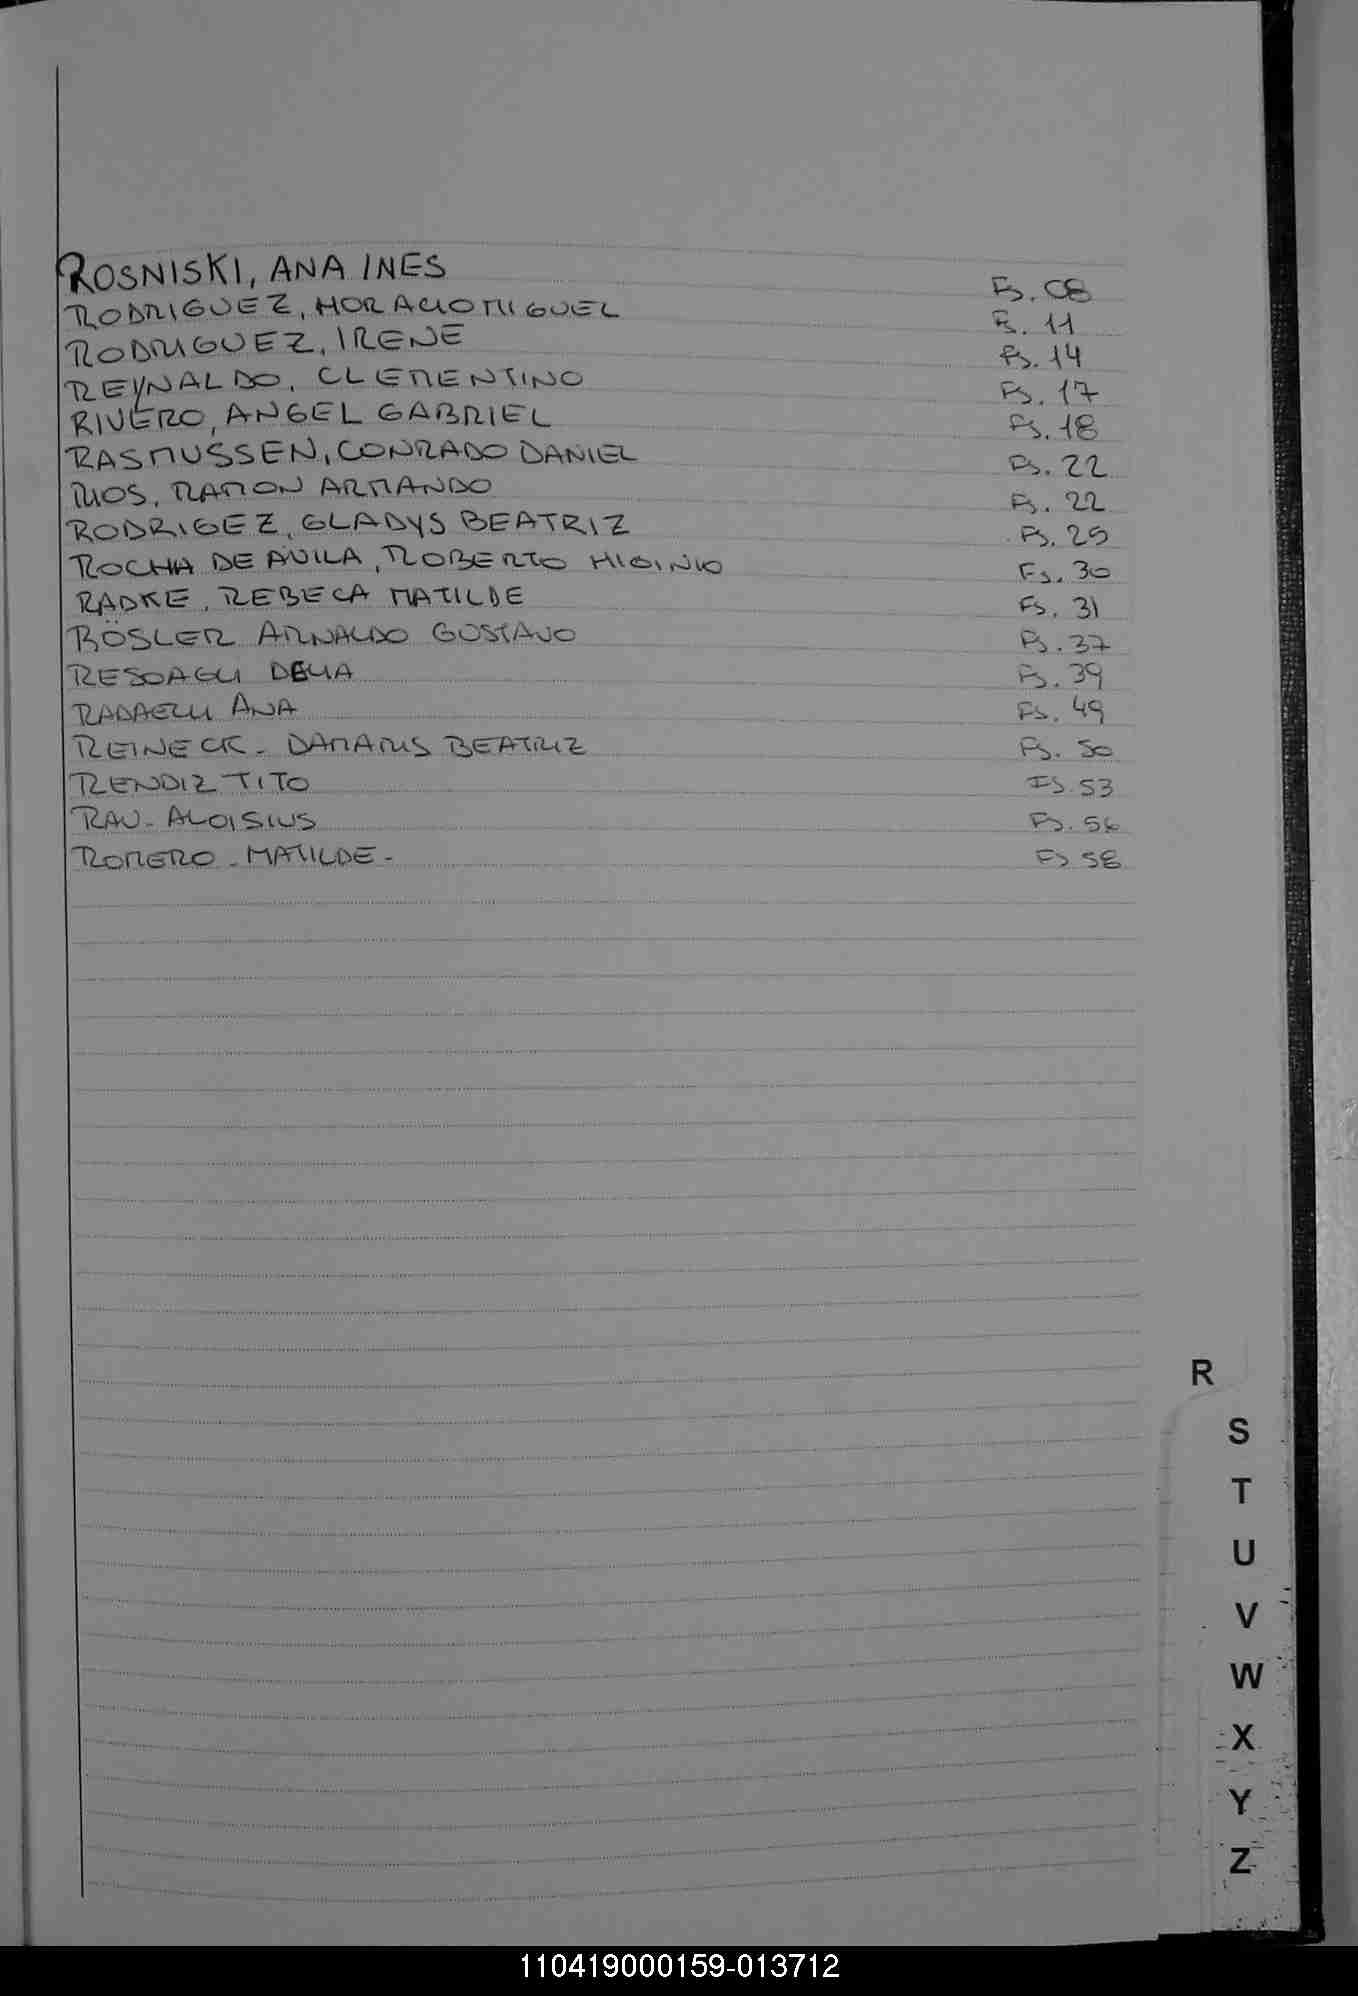 ROSNISKI, ANA INES Fs. 08
RODRIGUEZ, HORACIO MIGUEL Fs. 11
RODRIGUEZ, IRENE Fs. 14
REYNALDO, CLEMENTINO Fs. 17
RIVERO, ANGEL GABRIEL Fs. 18
RASMUSSEN, CONRADO DANIEL Fs. 22
RIOS, RAMON ARMANDO Fs. 22
RODRIGEZ, GLADYS BEATRIZ Fs. 25
ROCHA DE AVILA, ROBERTO HIGINIO Fs. 30
RADKE, REBECA MATILDE Fs. 31
RÖSLER ARNALDO GUSTAVO Fs. 37
RESOAGLI DELIA Fs. 39
RADAELLI ANA Fs. 49
REINECK - DAMARIS BEATRIZ Fs. 50
RENDIZ TITO Fs. 53
RAU - ALOISIUS Fs. 56
ROMERO - MATILDE - Fs 58
R
S
T
U
V
W
X
Y
Z
110419000159-013712